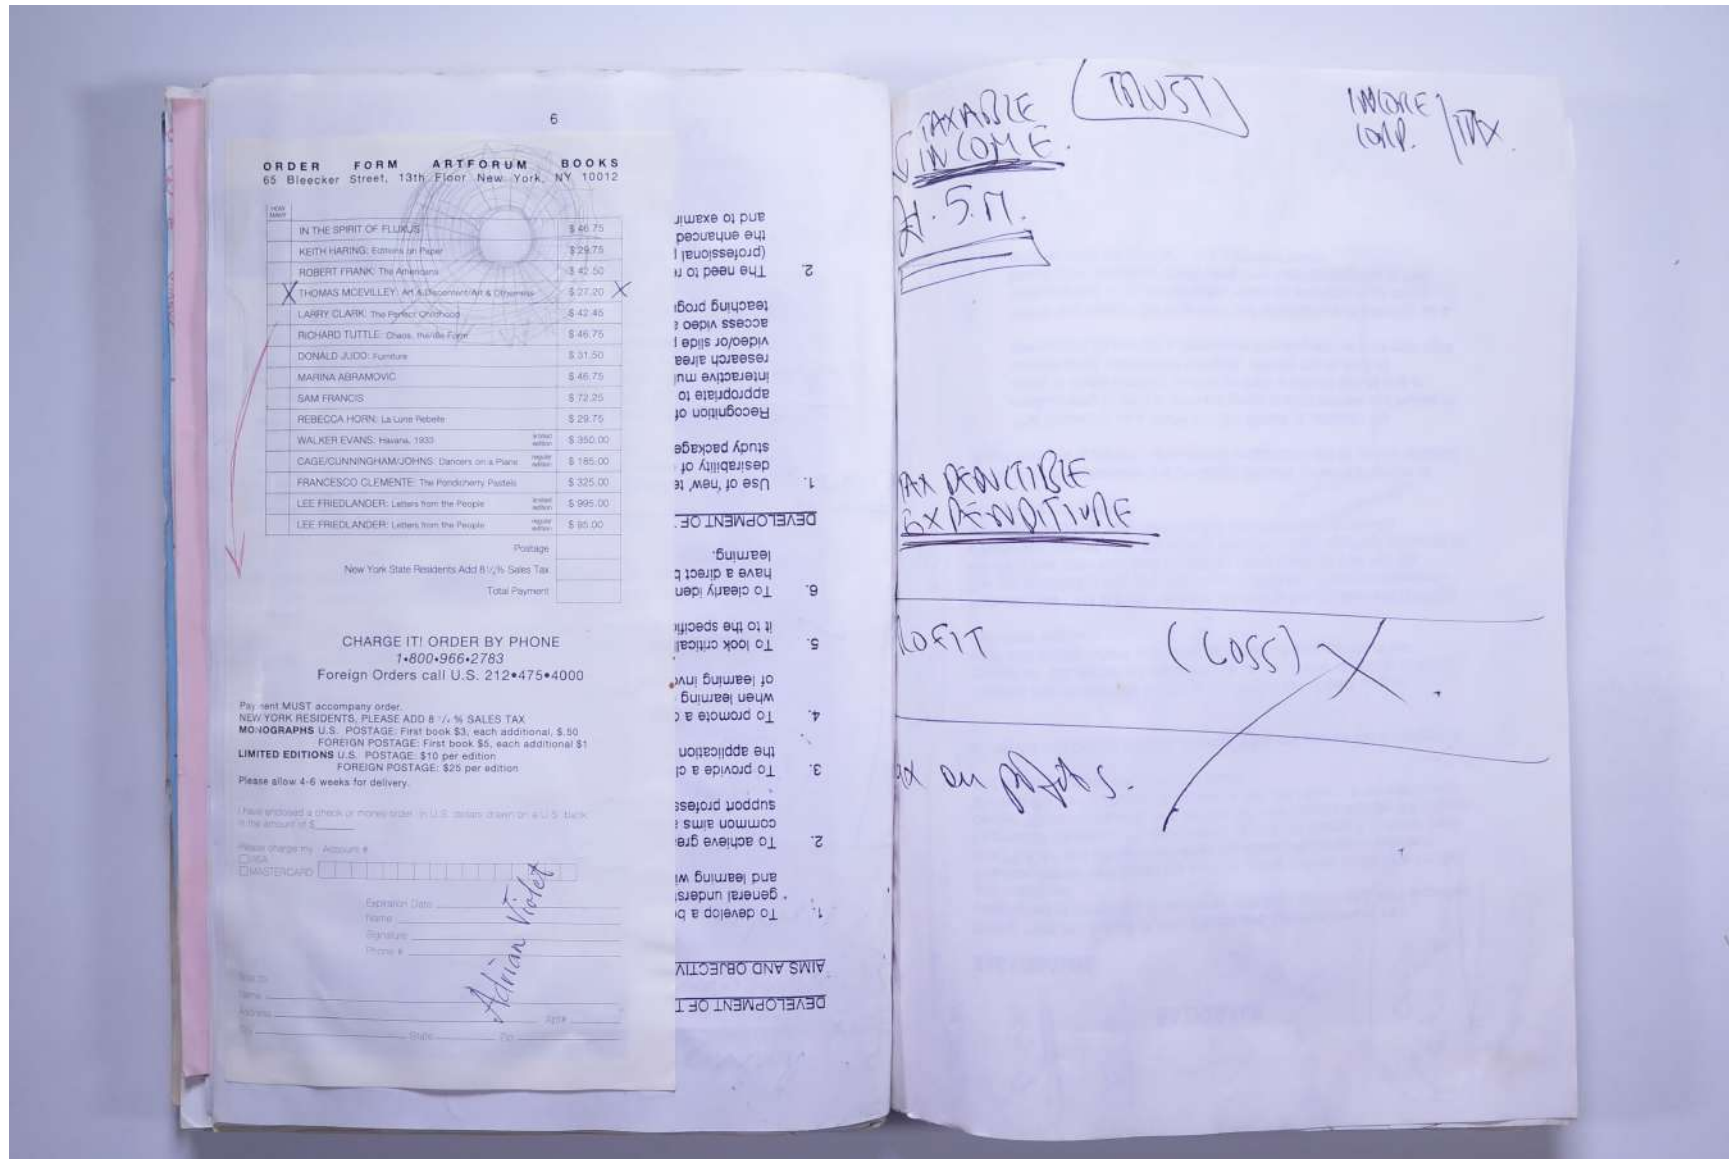 6
ORDER FORM ARTFORUM BOOKS
65 Bleecker Street, 13th Floor New York, NY 10012
HOW MANY
IN THE SPIRIT OF FLUXUS $ 46.75
KEITH HARING: Editions on Paper $ 29.75
ROBERT FRANK: The Americans $ 42.50
X THOMAS MCEVILLEY: Art & Discontent/Art & Otherness $ 27.20 X
LARRY CLARK: The Perfect Childhood $ 42.45
RICHARD TUTTLE: Chaos, the/die Form $ 46.75
DONALD JUDD: Furniture $ 31.50
MARINA ABRAMOVIC $ 46.75
SAM FRANCIS $ 72.25
REBECCA HORN: La Lune Rebelle $ 29.75
WALKER EVANS: Havana, 1933 limited edition $ 350.00
CAGE/CUNNINGHAM/JOHNS: Dancers on a Plane regular edition $ 185.00
FRANCESCO CLEMENTE: The Pondicherry Pastels $ 325.00
LEE FRIEDLANDER: Letters from the People limited edition $ 995.00
LEE FRIEDLANDER: Letters from the People regular edition $ 85.00
Postage
New York State Residents Add 8 1/4% Sales Tax
Total Payment
CHARGE IT! ORDER BY PHONE
1•800•966•2783
Foreign Orders call U.S. 212•475•4000
Payment MUST accompany order.
NEW YORK RESIDENTS, PLEASE ADD 8 1/4 % SALES TAX
MONOGRAPHS U.S. POSTAGE: First book $3, each additional, $.50
FOREIGN POSTAGE: First book $5, each additional $1
LIMITED EDITIONS U.S. POSTAGE: $10 per edition
FOREIGN POSTAGE: $25 per edition
Please allow 4-6 weeks for delivery.
I have enclosed a check or money order in U.S. dollars drawn on a U.S. bank
in the amount of $
Please charge my Account #
VISA
MASTERCARD
Expiration Date
Name
Signature
Phone #
Name
Address Apt#
City State Zip
Adrian Violet
DEVELOPMENT OF T
AIMS AND OBJECTIV
1. To develop a b
general underst
and learning wi
2. To achieve gre
common aims a
support profess
3. To provide a cl
the application
4. To promote a c
when learning
of learning inv
5. To look critical
it to the specifi
6. To clearly iden
have a direct b
learning.
DEVELOPMENT OF
1. Use of 'new' te
desirability of
study package
Recognition of
appropriate to
interactive mul
research area
video/or slide p
access video a
teaching prog
2. The need to r
(professional p
the enhanced
and to examin
TAXABLE
INCOME.
(TRUST)
INCOME
CORP. / TAX.
H.S.M.
TAX DEDUCTIBLE
EXPENDITURE
ROFIT (LOSS) X
ax on profits.